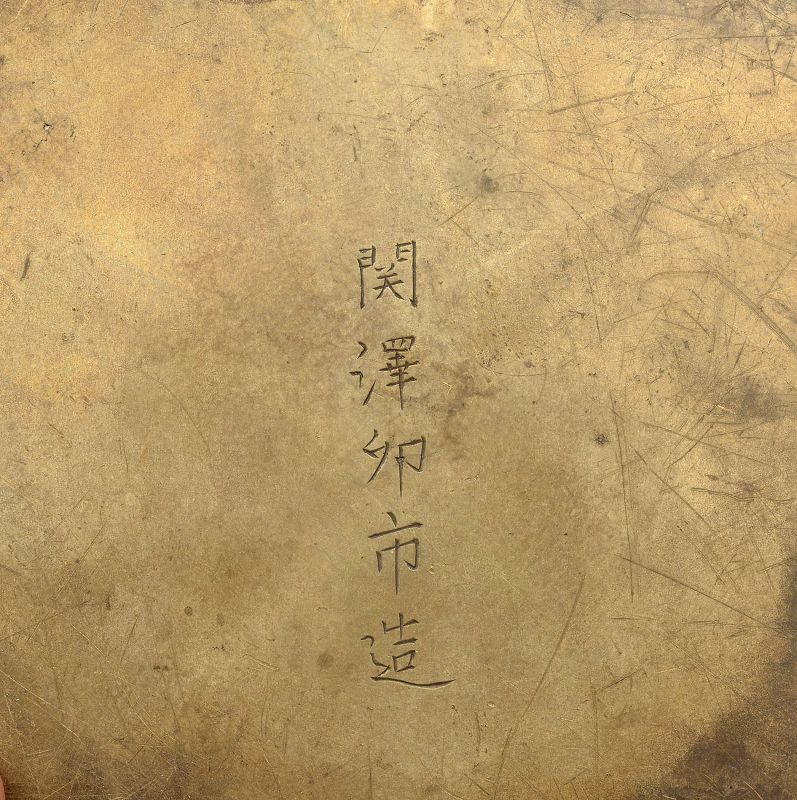 関澤卯市造